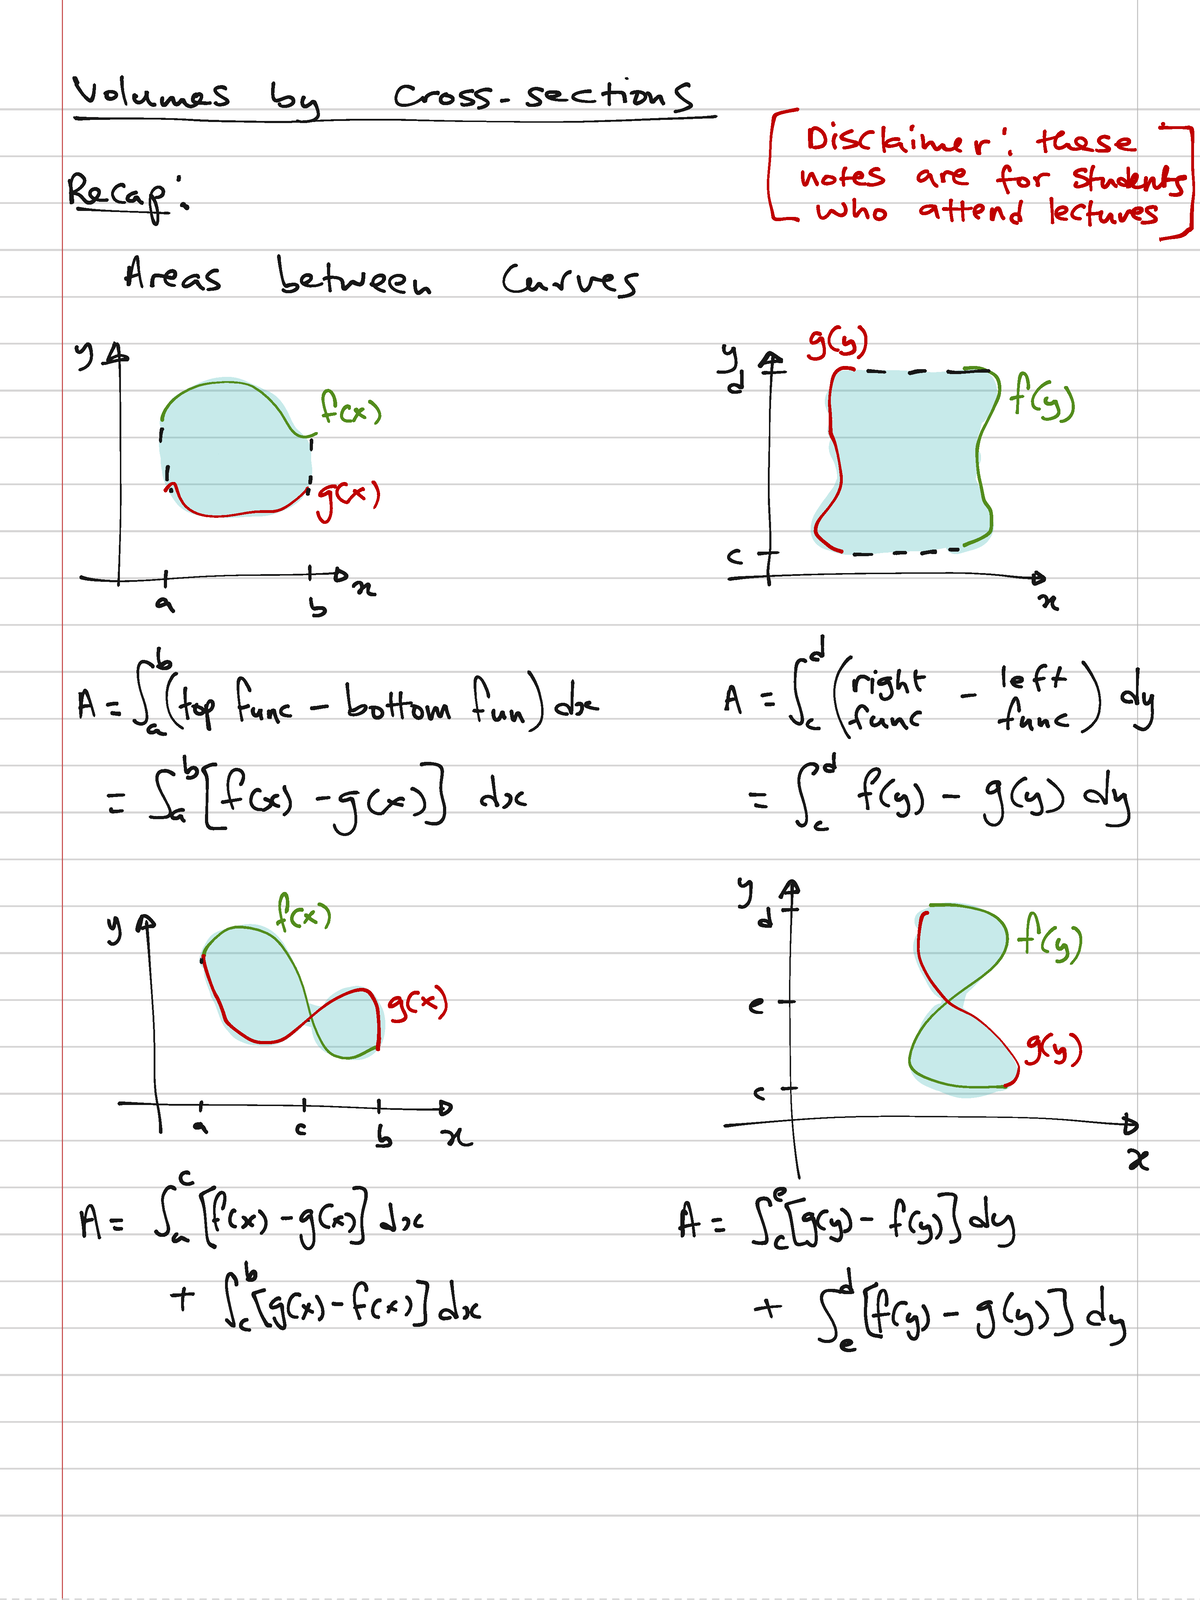 Volumes by cross-sections
[Disclaimer: these
notes are for students
who attend lectures]
Recap:
Areas between curves
y
f(x)
g(x)
a
b
x
g(y)
y
d
f(y)
c
x
A = ∫_a^b (top func - bottom fun) dx
= ∫_a^b [f(x) - g(x)] dx
A = ∫_c^d (right func - left func) dy
= ∫_c^d f(y) - g(y) dy
f(x)
y
g(x)
a
c
b
x
y
d
f(y)
e
g(y)
c
x
A = ∫_a^c [f(x) - g(x)] dx
+ ∫_c^b [g(x) - f(x)] dx
A = ∫_c^e [g(y) - f(y)] dy
+ ∫_e^d [f(y) - g(y)] dy